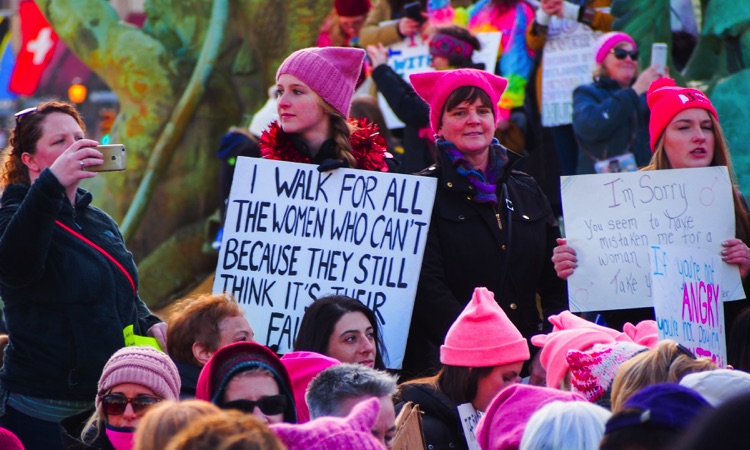 I WALK FOR ALL
THE WOMEN WHO CAN'T
BECAUSE THEY STILL
THINK IT'S THEIR
I'm Sorry
You seem to have
mistaken me for a
woman
Take
If you're
not
ANGRY
you're not